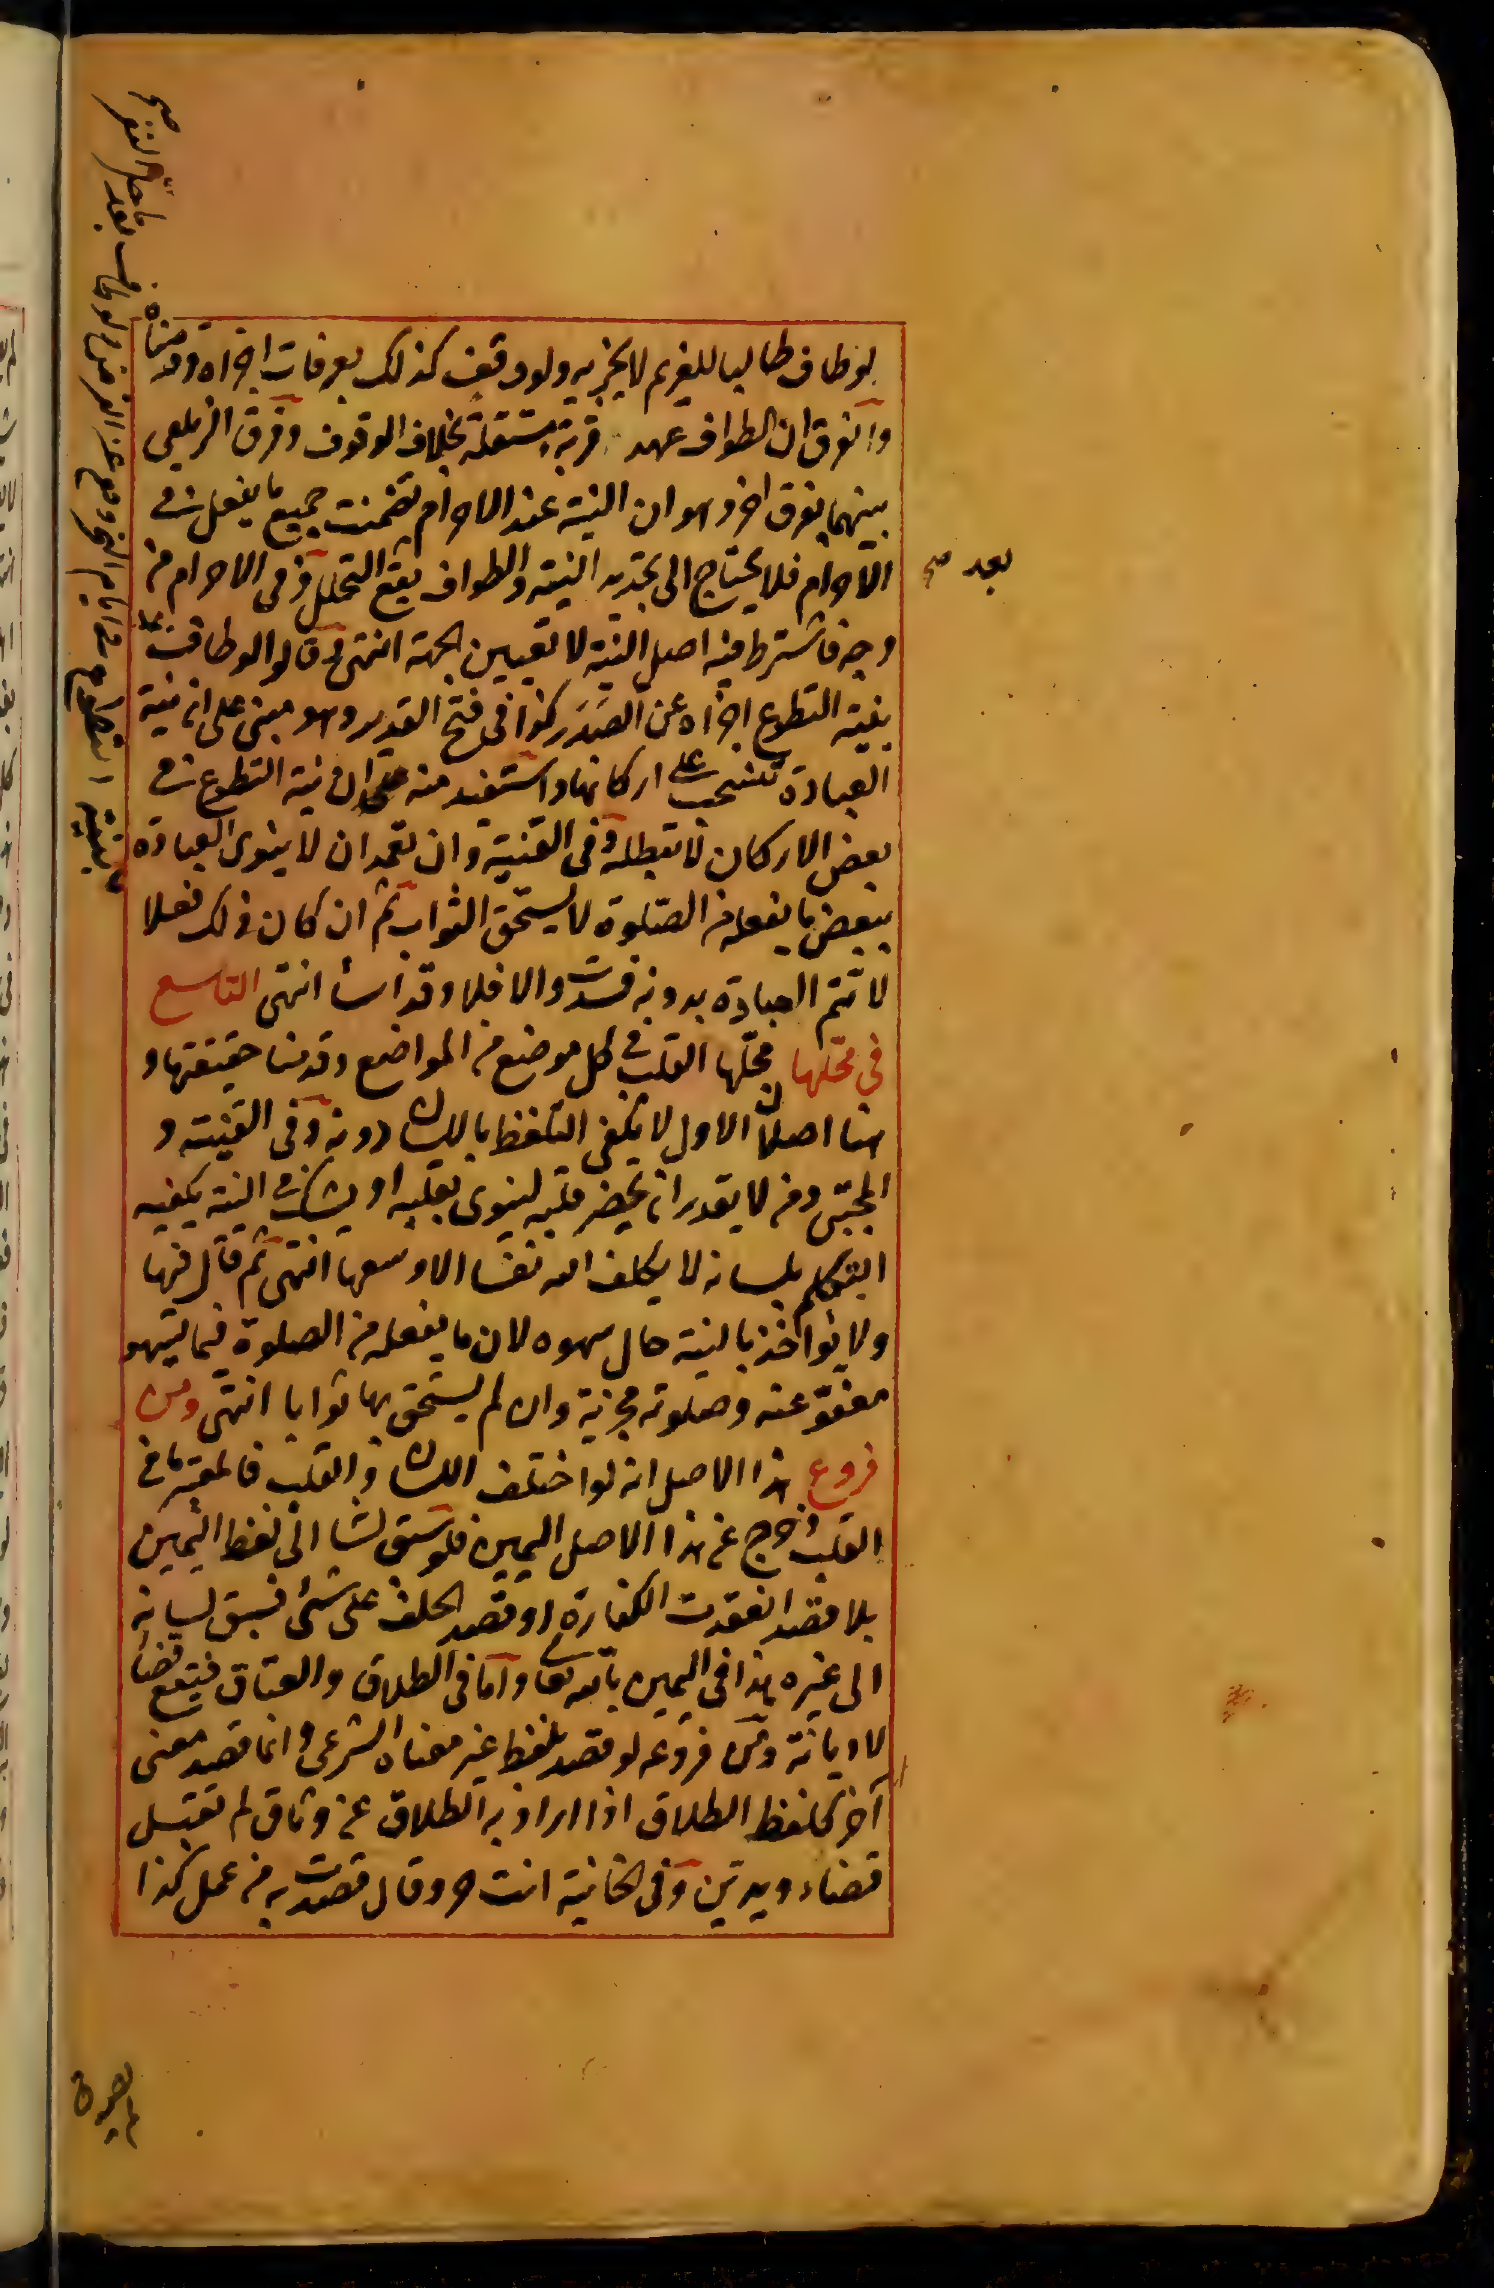 لو طاف طالبا للغريم لا يجزيه ولو وقف كذلك بعرفات اجزاه وقدمناه
والفرق ان الطواف عهد قربة مستقلة بخلاف الوقوف وفرق الزيلعي
بينهما بفرق اخر وهو ان النية عند الاحرام تضمنت جميع ما يفعل في
الاحرام فلا يحتاج الى تجديد النية والطواف يقع التحلل وفي الاحرام من
وجه فاشترط فيه اصل النية لا تعيين الجهة انتهى وقالوا لو طاف
بنية التطوع اجزاه عن الصدر كذا في فتح القدير وهو مبني على ان نية
العبادة تنسحب على اركانها واستفيد منه ان نية التطوع في
بعض الاركان لا تبطله وفي القنية وان تعمد ان لا ينوي العبادة
ببعض ما يفعله من الصلوة لا يستحق الثواب ثم ان كان ذلك فعلا
لا تتم العبادة بدونه فسدت والا فلا وقد اسأ انتهى التاسع
في محلها محلها القلب في كل موضع من المواضع وقدمنا حقيقتها و
هنا اصلان الاول لا يكفي التلفظ باللسان دونه وفي القنية و
المجتبى ومن لا يقدر ان يحضر قلبه لينوي بقلبه او يشك في النية يكفيه
التكلم بلسانه لا يكلف الله نفسا الا وسعها انتهى ثم قال فيها
ولا يؤاخذ بالنية حال سهوه لان ما يفعله من الصلوة فيما يسهو
معفو عنه وصلوته مجزية وان لم يستحق بها ثوابا انتهى ومن
فروع هذا الاصل انه لو اختلف اللسان والقلب فالمعتبر ما في
القلب وخرج عن هذا الاصل اليمين فلو سبق لسا الى لفظ اليمين
بلا قصد انعقدت الكفارة او قصد الحلف على شئ فسبق لسانه
الى غيره هذا في اليمين بالله تعا واما في الطلاق والعتاق فيقع قضا
لا ديانة ومن فروعه لو قصد بلفظ غير معناه الشرعي وانما قصد معنى
آخر كلفظ الطلاق اذا اراد به الطلاق عن وثاق لم تقبل
قضاء ويدين وفي الخانية انت حر وقال قصدت به من عمل كذا
بعد صح
بنية التطوع في ايام النحر وقع عن الفرض ولو طاف بعد ما حل النفر صح
لم يصدق